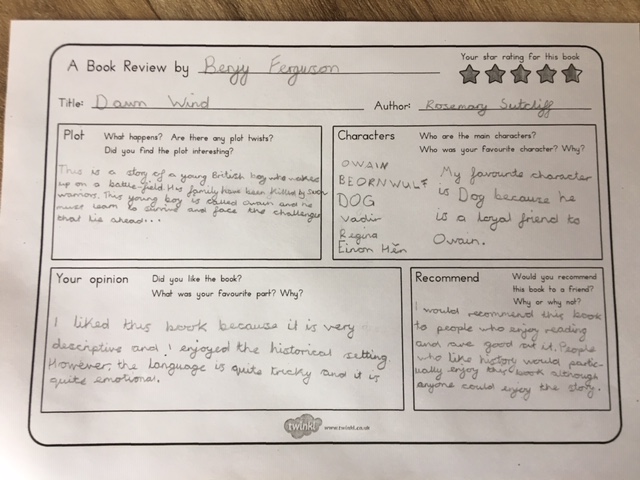 A Book Review by Benjy Ferguson
Your star rating for this book
Title: Dawn Wind
Author: Rosemary Sutcliff
Plot What happens? Are there any plot twists?
Did you find the plot interesting?
This is a story of a young British boy who wakes
up on a battle-field. His family have been killed by Saxon
warriors. This young boy is called Owain and he
must learn to survive and face the challenges
that lie ahead...
Characters Who are the main characters?
Who was your favourite character? Why?
OWAIN
BEORNWULF
DOG
Vadir
Regina
Einon Hěn
My favourite character
is Dog because he
is a loyal friend to
Owain.
Your opinion Did you like the book?
What was your favourite part? Why?
I liked this book because it is very
descriptive and I enjoyed the historical setting.
However, the language is quite tricky and it is
quite emotional.
Recommend Would you recommend
this book to a friend?
Why or why not?
I would recommend this book
to people who enjoy reading
and are good at it. People
who like history would partic-
ually enjoy this book although
anyone could enjoy the story.
twinkl www.twinkl.co.uk